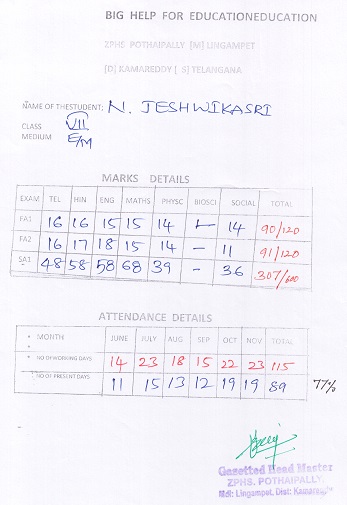 BIG HELP FOR EDUCATIONEDUCATION
ZPHS POTHAIPALLY [M] LINGAMPET
[D] KAMAREDDY [ S] TELANGANA
NAME OF THESTUDENT: N. JESHWIKASRI
CLASS VII
MEDIUM E/M
MARKS DETAILS
EXAM TEL HIN ENG MATHS PHYSC BIOSCI SOCIAL TOTAL
FA1 16 16 15 15 14 - 14 90/120
FA2 16 17 18 15 14 - 11 91/120
SA1 48 58 58 68 39 - 36 307/600
ATTENDANCE DETAILS
MONTH JUNE JULY AUG SEP OCT NOV TOTAL
NO OF WORKING DAYS 14 23 18 15 22 23 115
NO OF PRESENT DAYS 11 15 13 12 19 19 89 77%
Gazetted Head Master
ZPHS. POTHAIPALLY,
Mdl: Lingampet, Dist: Kamareddy